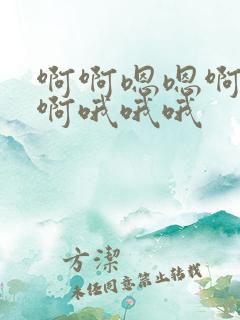 啊啊嗯嗯啊
啊哦哦哦
方潔
未经同意禁止转载